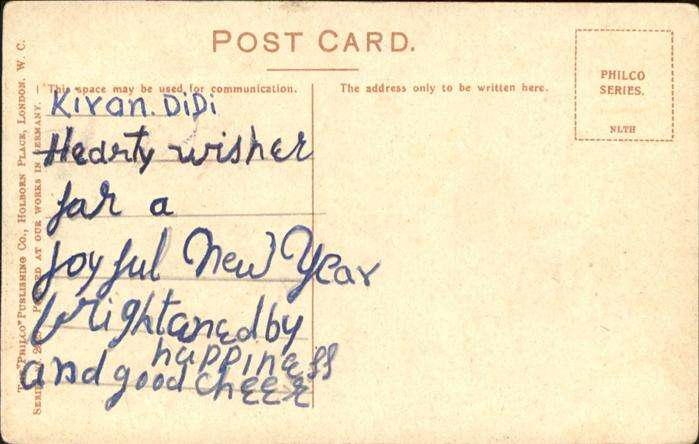 POST CARD.
This space may be used for communication.
The address only to be written here.
PHILCO
SERIES.
NLTH
Kiran. DiDi
Hearty wisher
far a
Joyful New Year
brightaned by
happiness
and good cheer
"PHILCO" PUBLISHING CO., HOLBORN PLACE, LONDON. W. C.
AT OUR WORKS IN GERMANY.